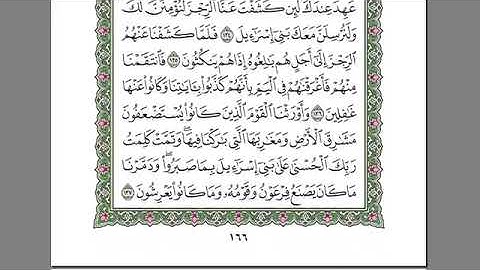 عَهِدَ عِندَكَ لَئِن كَشَفْتَ عَنَّا ٱلرِّجْزَ لَنُؤْمِنَنَّ لَكَ
وَلَنُرْسِلَنَّ مَعَكَ بَنِىٓ إِسْرَٰٓءِيلَ ١٣٤ فَلَمَّا كَشَفْنَا عَنْهُمُ
ٱلرِّجْزَ إِلَىٰٓ أَجَلٍ هُم بَٰلِغُوهُ إِذَا هُمْ يَنكُثُونَ ١٣٥ فَٱنتَقَمْنَا
مِنْهُمْ فَأَغْرَقْنَٰهُمْ فِى ٱلْيَمِّ بِأَنَّهُمْ كَذَّبُوا۟ بِـَٔايَٰتِنَا وَكَانُوا۟ عَنْهَا
غَٰفِلِينَ ١٣٦ وَأَوْرَثْنَا ٱلْقَوْمَ ٱلَّذِينَ كَانُوا۟ يُسْتَضْعَفُونَ
مَشَٰرِقَ ٱلْأَرْضِ وَمَغَٰرِبَهَا ٱلَّتِى بَٰرَكْنَا فِيهَا ۖ وَتَمَّتْ كَلِمَتُ
رَبِّكَ ٱلْحُسْنَىٰ عَلَىٰ بَنِىٓ إِسْرَٰٓءِيلَ بِمَا صَبَرُوا۟ ۖ وَدَمَّرْنَا
مَا كَانَ يَصْنَعُ فِرْعَوْنُ وَقَوْمُهُۥ وَمَا كَانُوا۟ يَعْرِشُونَ ١٣٧
١٦٦